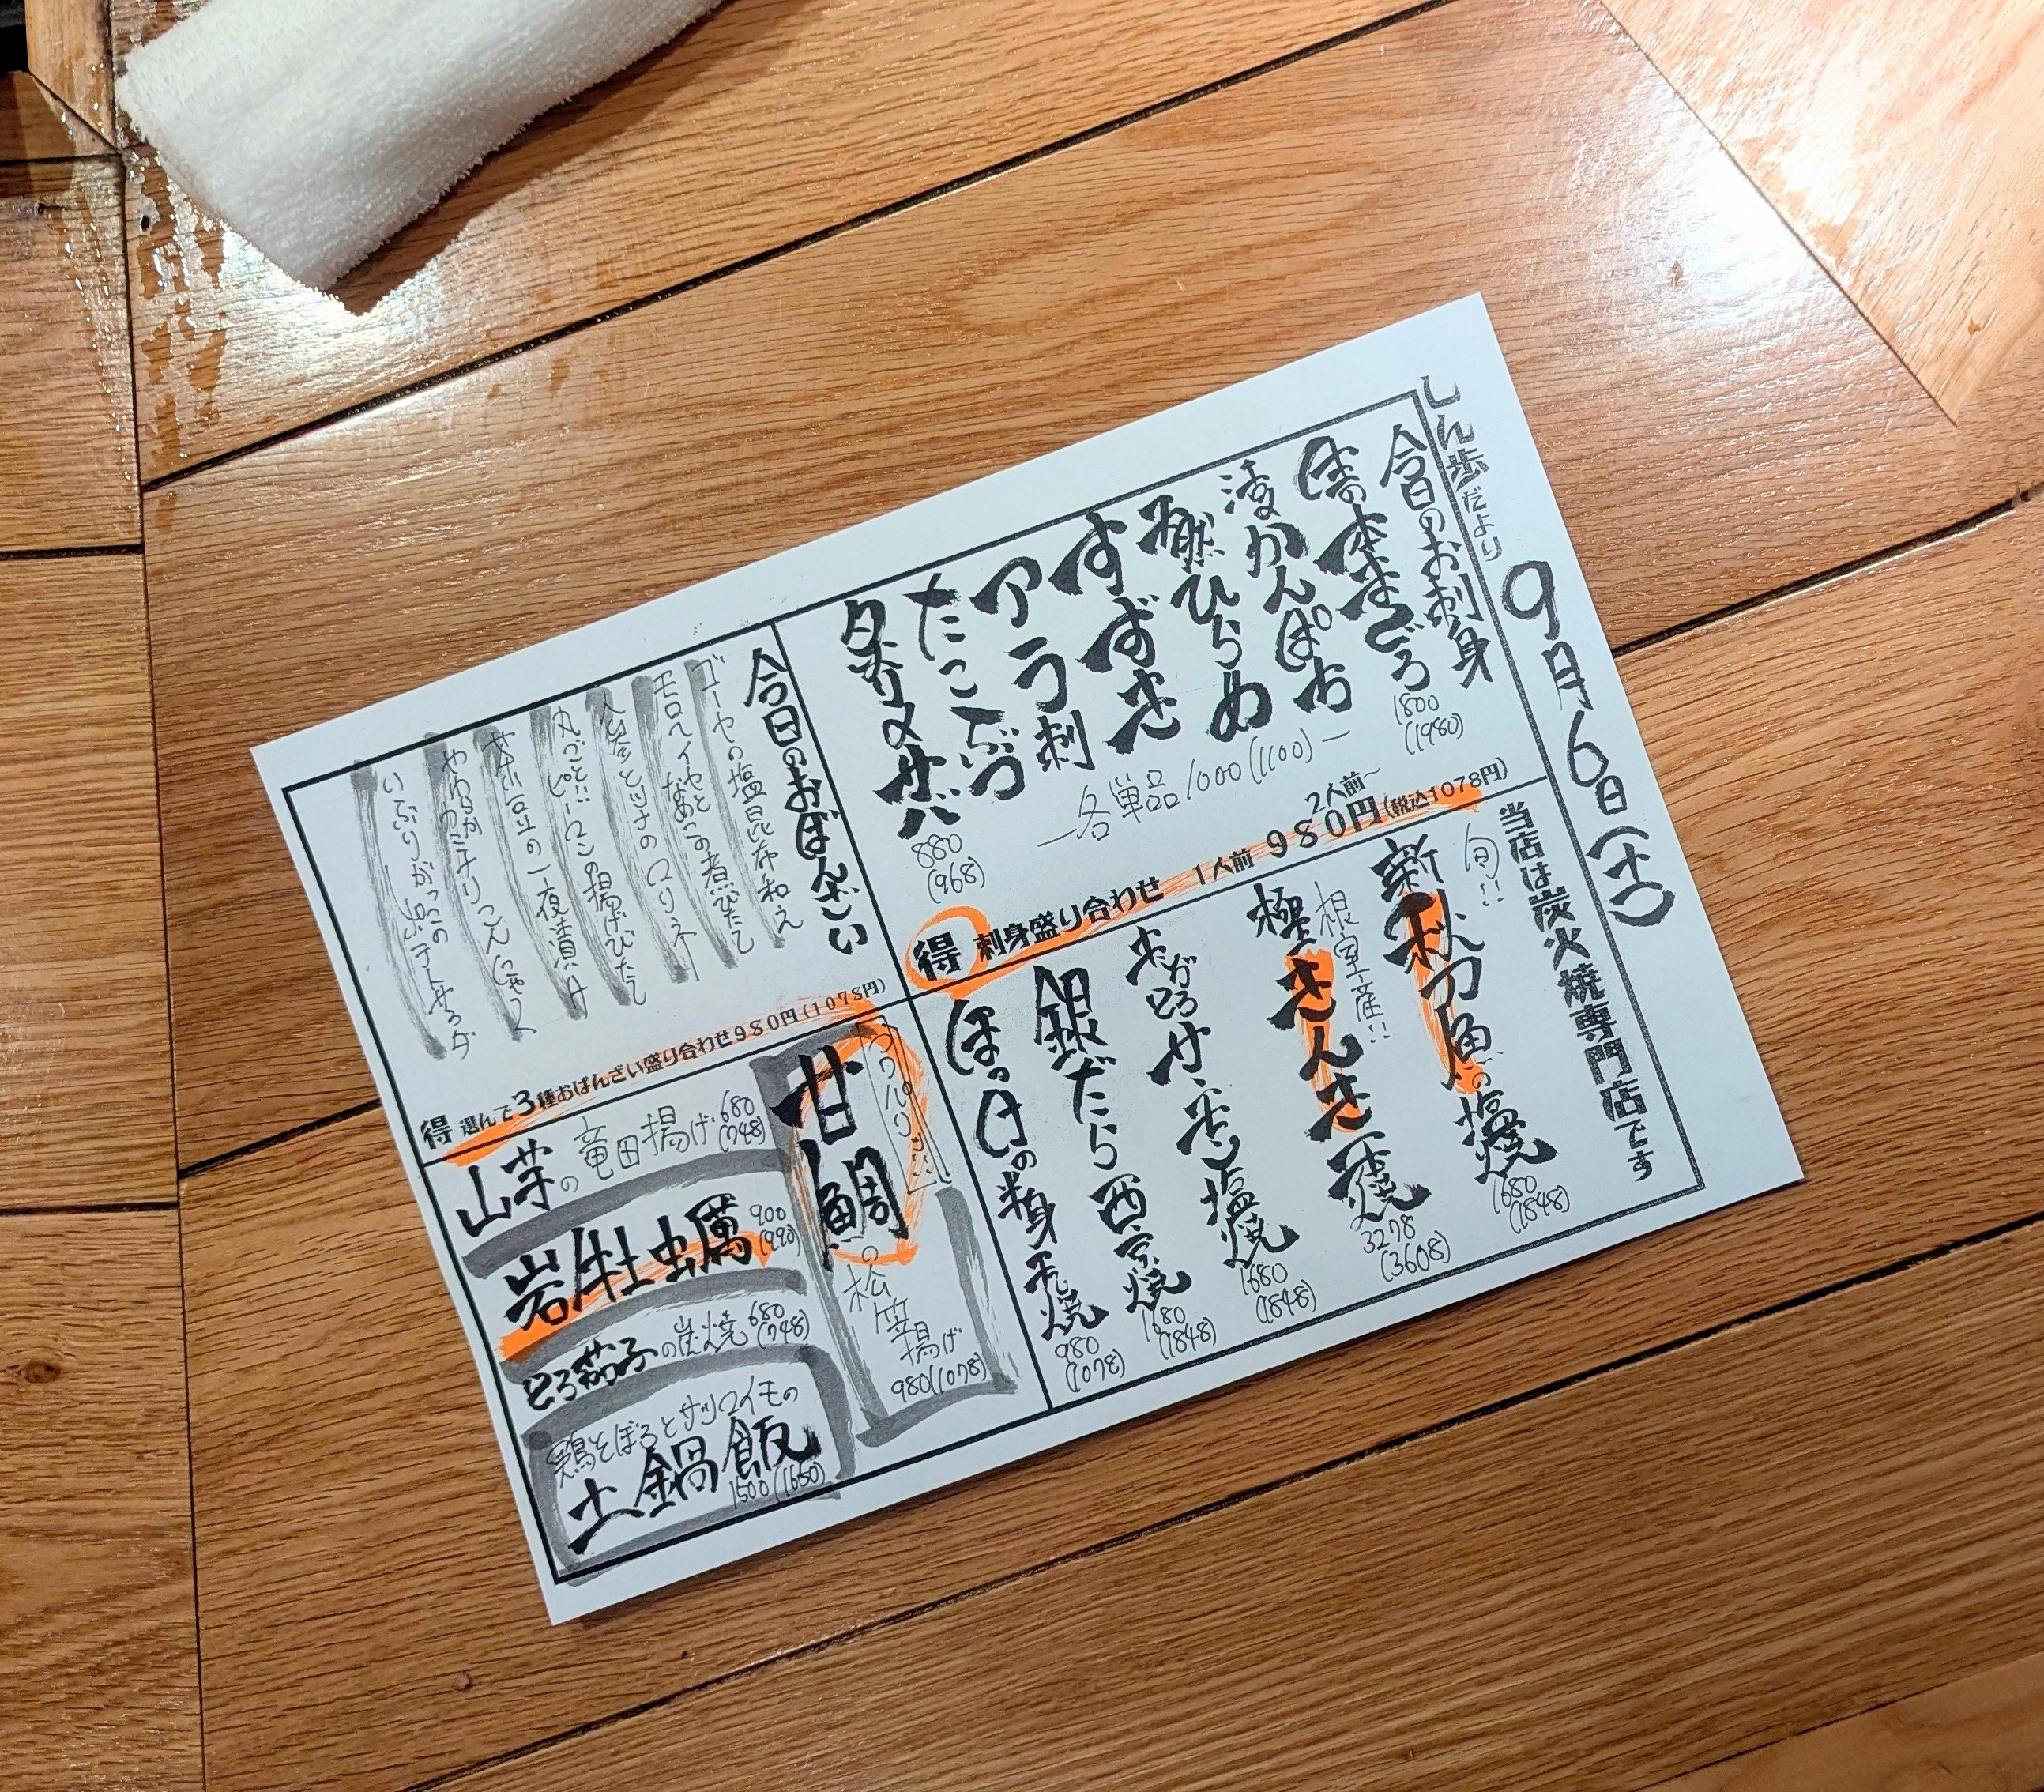 しん歩だより
9月6日(土)
今日のお刺身
生の本まぐろ 1800 (1980)
活かんぱち
天然ひらめ
すずき
アラ刺
たこぶつ
炙り〆サバ 880 (968)
ー各単品1000(1100)ー
得 刺身盛り合わせ 1人前 980円(税込1078円)
2人前~
当店は炭火焼専門店です
旬!!
新秋刀魚の塩焼 1680 (1848)
根室産!!
極きんき一夜干焼 3278 (3608)
とろサーモン塩焼 1680 (1848)
銀だら西京焼 1680 (1848)
ほっけの半身干し焼 980 (1078)
今日のおばんざい
ゴーヤの塩昆布和え
モロヘイヤとなめこの煮びたし
人参とツナのマリネ
丸ごと!!ピーマンの揚げびたし
茶豆の一夜漬け
やわらかピリこんにゃく
いぶりがっこのポテトサラダ
得 選んで3種おばんざい盛り合わせ980円(1078円)
甘鯛の松笠揚げ 980(1078)
山芋の竜田揚げ 680 (748)
岩牡蠣 900 (990)
とろ茄子の炭火焼 680 (748)
鶏そぼろとサツマイモの
土鍋飯 1500 (1650)